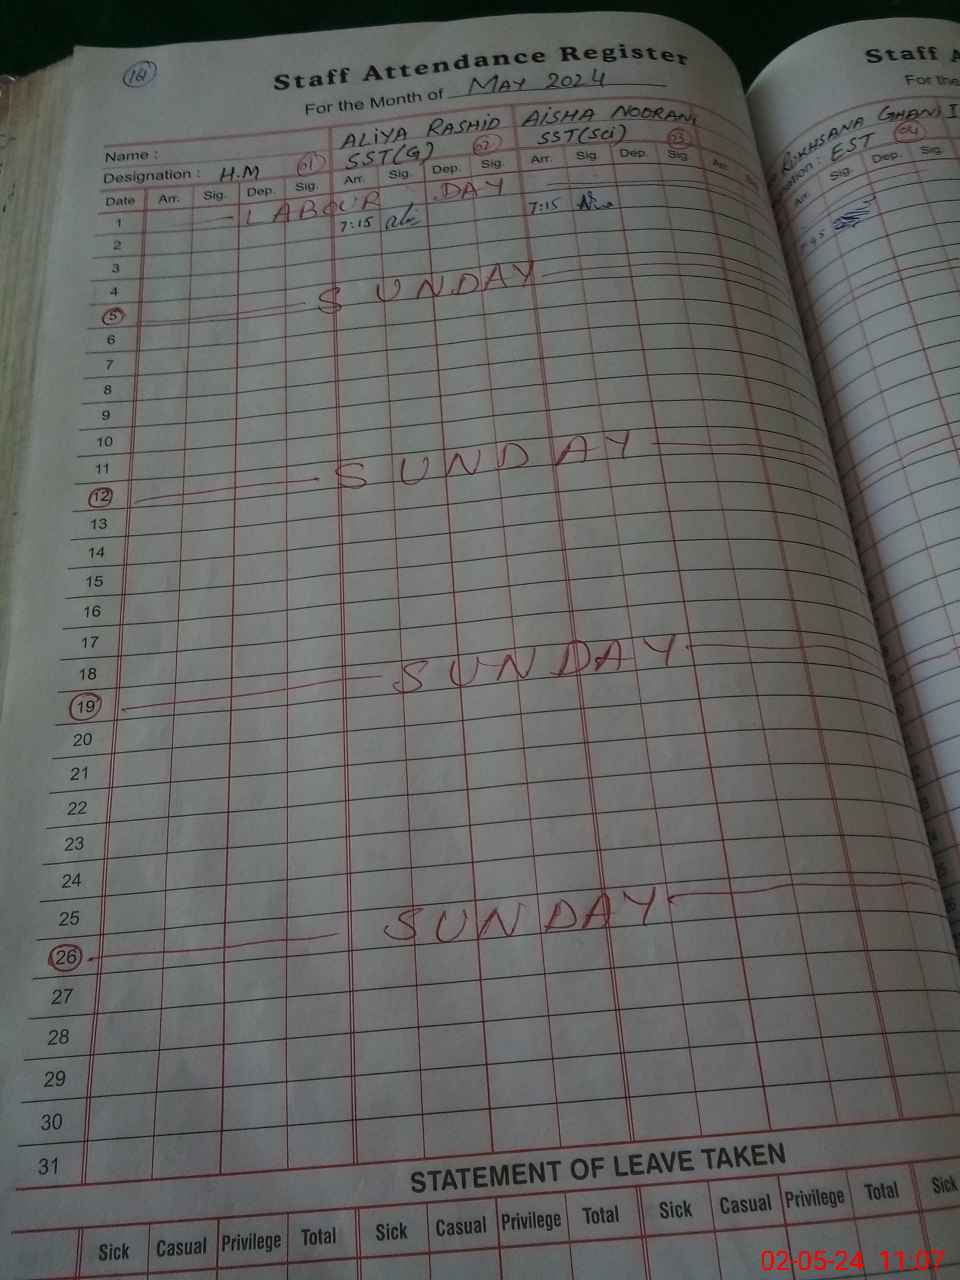 181
Staff Attendance Register
For the Month of MAY 2024
Name : ALIYA RASHID AISHA NOORANI
Designation : H.M 01 SST(G) 02 SST(Sci) 03
Date Arr. Sig. Dep. Sig. Arr. Sig. Dep. Sig. Arr. Sig. Dep. Sig. Arr. Sig.
1 LABOUR DAY
2 7:15 7:15
3
4
5 SUNDAY
6
7
8
9
10
11
12 SUNDAY
13
14
15
16
17
18
19 SUNDAY
20
21
22
23
24
25
26 SUNDAY
27
28
29
30
31
STATEMENT OF LEAVE TAKEN
Sick Casual Privilege Total Sick Casual Privilege Total Sick Casual Privilege Total Sick
Staff A
For the
RUKHSANA GHANI
nation : EST 04
Arr. Sig. Dep. Sig.
02-05-24 11:07